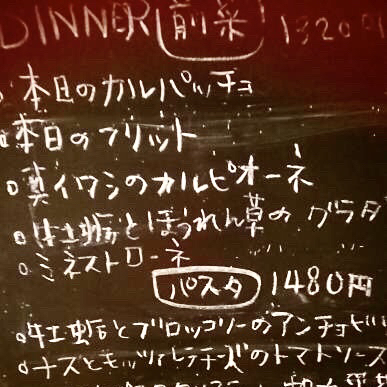 DINNER 前菜 1320円
本日のカルパッチョ
本日のフリット
真イワシのカルピオーネ
牡蛎とほうれん草のグラタ
ミネストローネ
パスタ 1480円
牡蛎とブロッコリーのアンチョビ
ナスとモッツァレラチーズのトマトソース